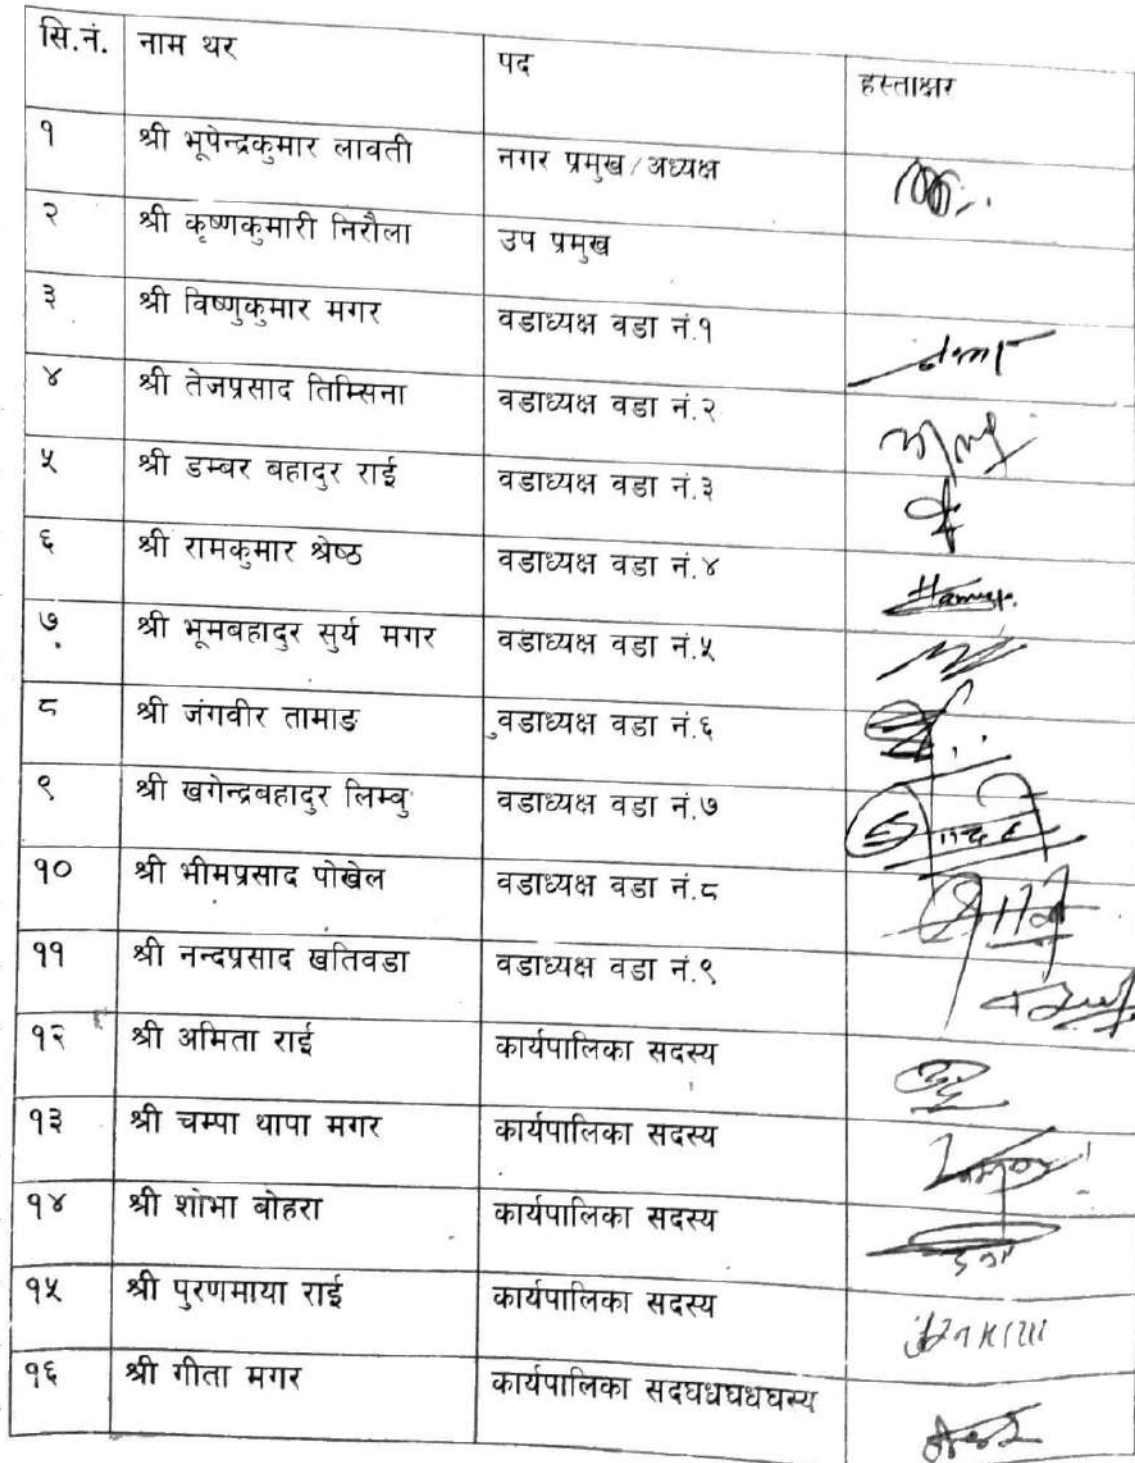 सि.नं. नाम थर पद हस्ताक्षर
१ श्री भूपेन्द्रकुमार लावती नगर प्रमुख/अध्यक्ष
२ श्री कृष्णकुमारी निरौला उप प्रमुख
३ श्री विष्णुकुमार मगर वडाध्यक्ष वडा नं.१
४ श्री तेजप्रसाद तिम्सिना वडाध्यक्ष वडा नं.२
५ श्री डम्बर बहादुर राई वडाध्यक्ष वडा नं.३
६ श्री रामकुमार श्रेष्ठ वडाध्यक्ष वडा नं.४
७ श्री भूमबहादुर सुर्य मगर वडाध्यक्ष वडा नं.५
८ श्री जंगवीर तामाङ वडाध्यक्ष वडा नं.६
९ श्री खगेन्द्रबहादुर लिम्बु वडाध्यक्ष वडा नं.७
१० श्री भीमप्रसाद पोखेल वडाध्यक्ष वडा नं.८
११ श्री नन्दप्रसाद खतिवडा वडाध्यक्ष वडा नं.९
१२ श्री अमिता राई कार्यपालिका सदस्य
१३ श्री चम्पा थापा मगर कार्यपालिका सदस्य
१४ श्री शोभा बोहरा कार्यपालिका सदस्य
१५ श्री पुरणमाया राई कार्यपालिका सदस्य
१६ श्री गीता मगर कार्यपालिका सदघधघधघस्य